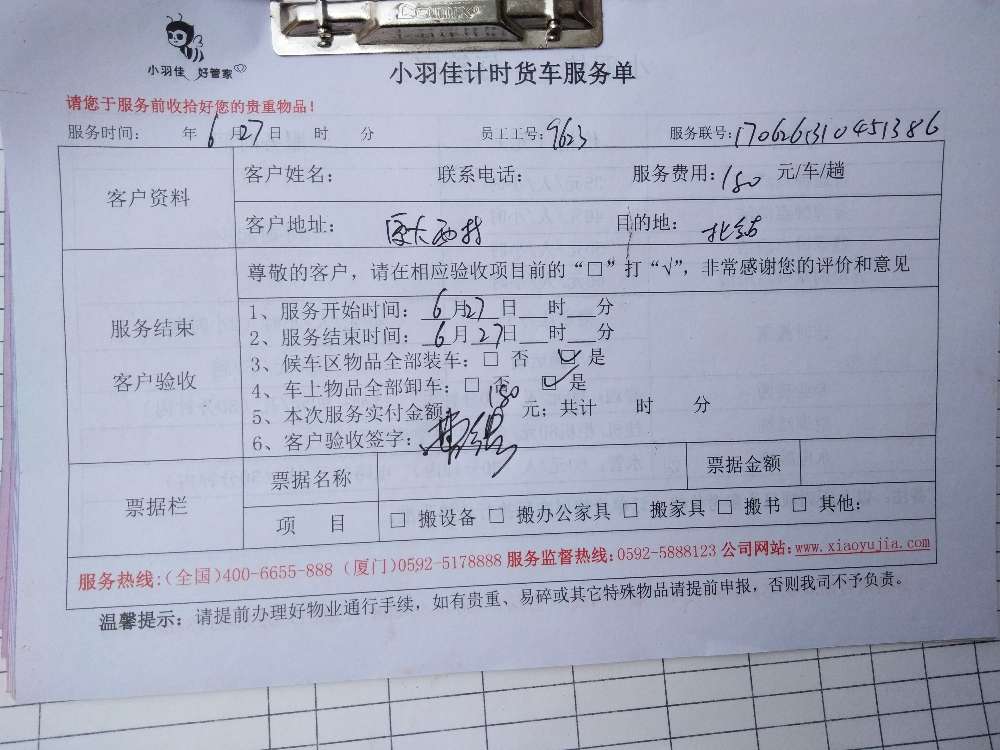 小羽佳 好管家
小羽佳计时货车服务单
请您于服务前收拾好您的贵重物品！
服务时间： 年 6月27日 时 分 员工工号：9623 服务联号：1706261310451386
客户资料
客户姓名： 联系电话： 服务费用：180 元/车/趟
客户地址：厦大西村 目的地：北站
服务结束
客户验收
尊敬的客户，请在相应验收项目前的“□”打“√”，非常感谢您的评价和意见
1、服务开始时间：6月27日__时__分
2、服务结束时间：6月27日__时__分
3、候车区物品全部装车：□ 否 ☑ 是
4、车上物品全部卸车：□ 否 ☑ 是
5、本次服务实付金额：180元；共计 时 分
6、客户验收签字：
票据栏
票据名称 票据金额
项 目 □ 搬设备 □ 搬办公家具 □ 搬家具 □ 搬书 □ 其他：
服务热线：(全国)400-6655-888 (厦门)0592-5178888 服务监督热线：0592-5888123 公司网站：www.xiaoyujia.com
温馨提示：请提前办理好物业通行手续，如有贵重、易碎或其它特殊物品请提前申报，否则我司不予负责。